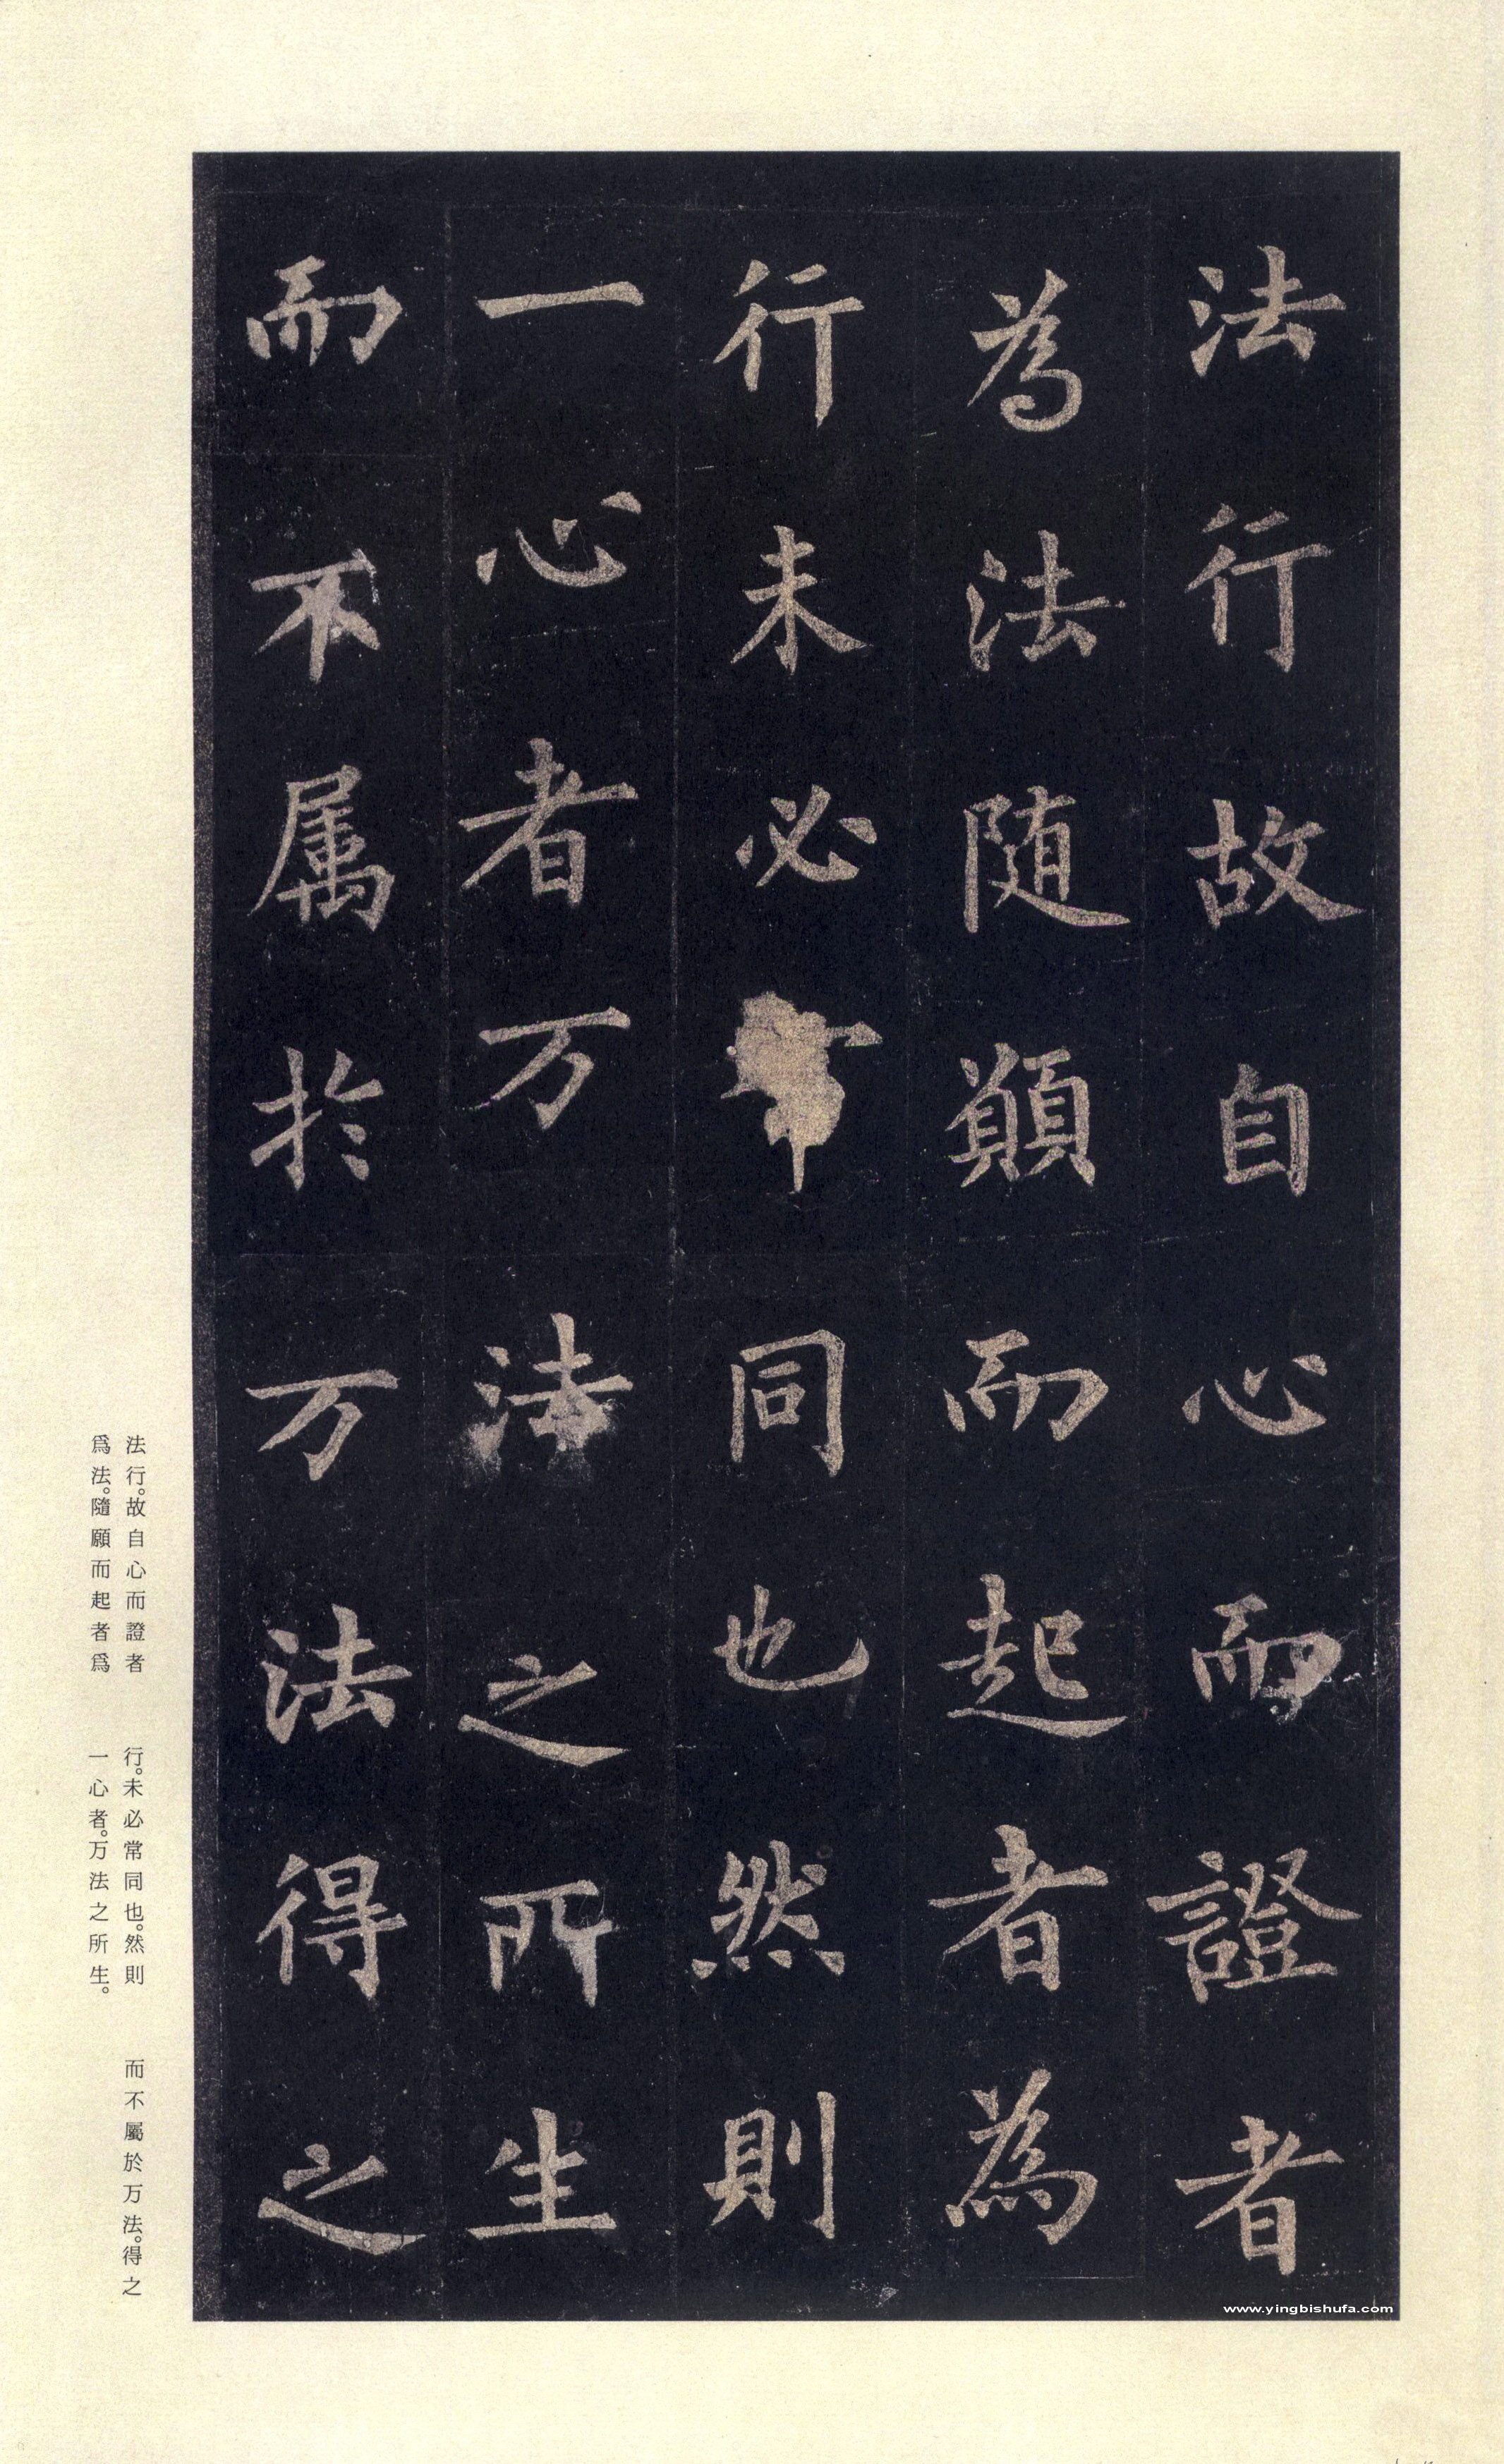 法行故自心而證者
為法随顚而起者為
行未必常同也然則
一心者万法之所生
而不属於万法得之
法行。故自心而證者
爲法。隨願而起者爲
行。未必常同也。然則
一心者。万法之所生。
而不屬於万法。得之
www.yingbishufa.com